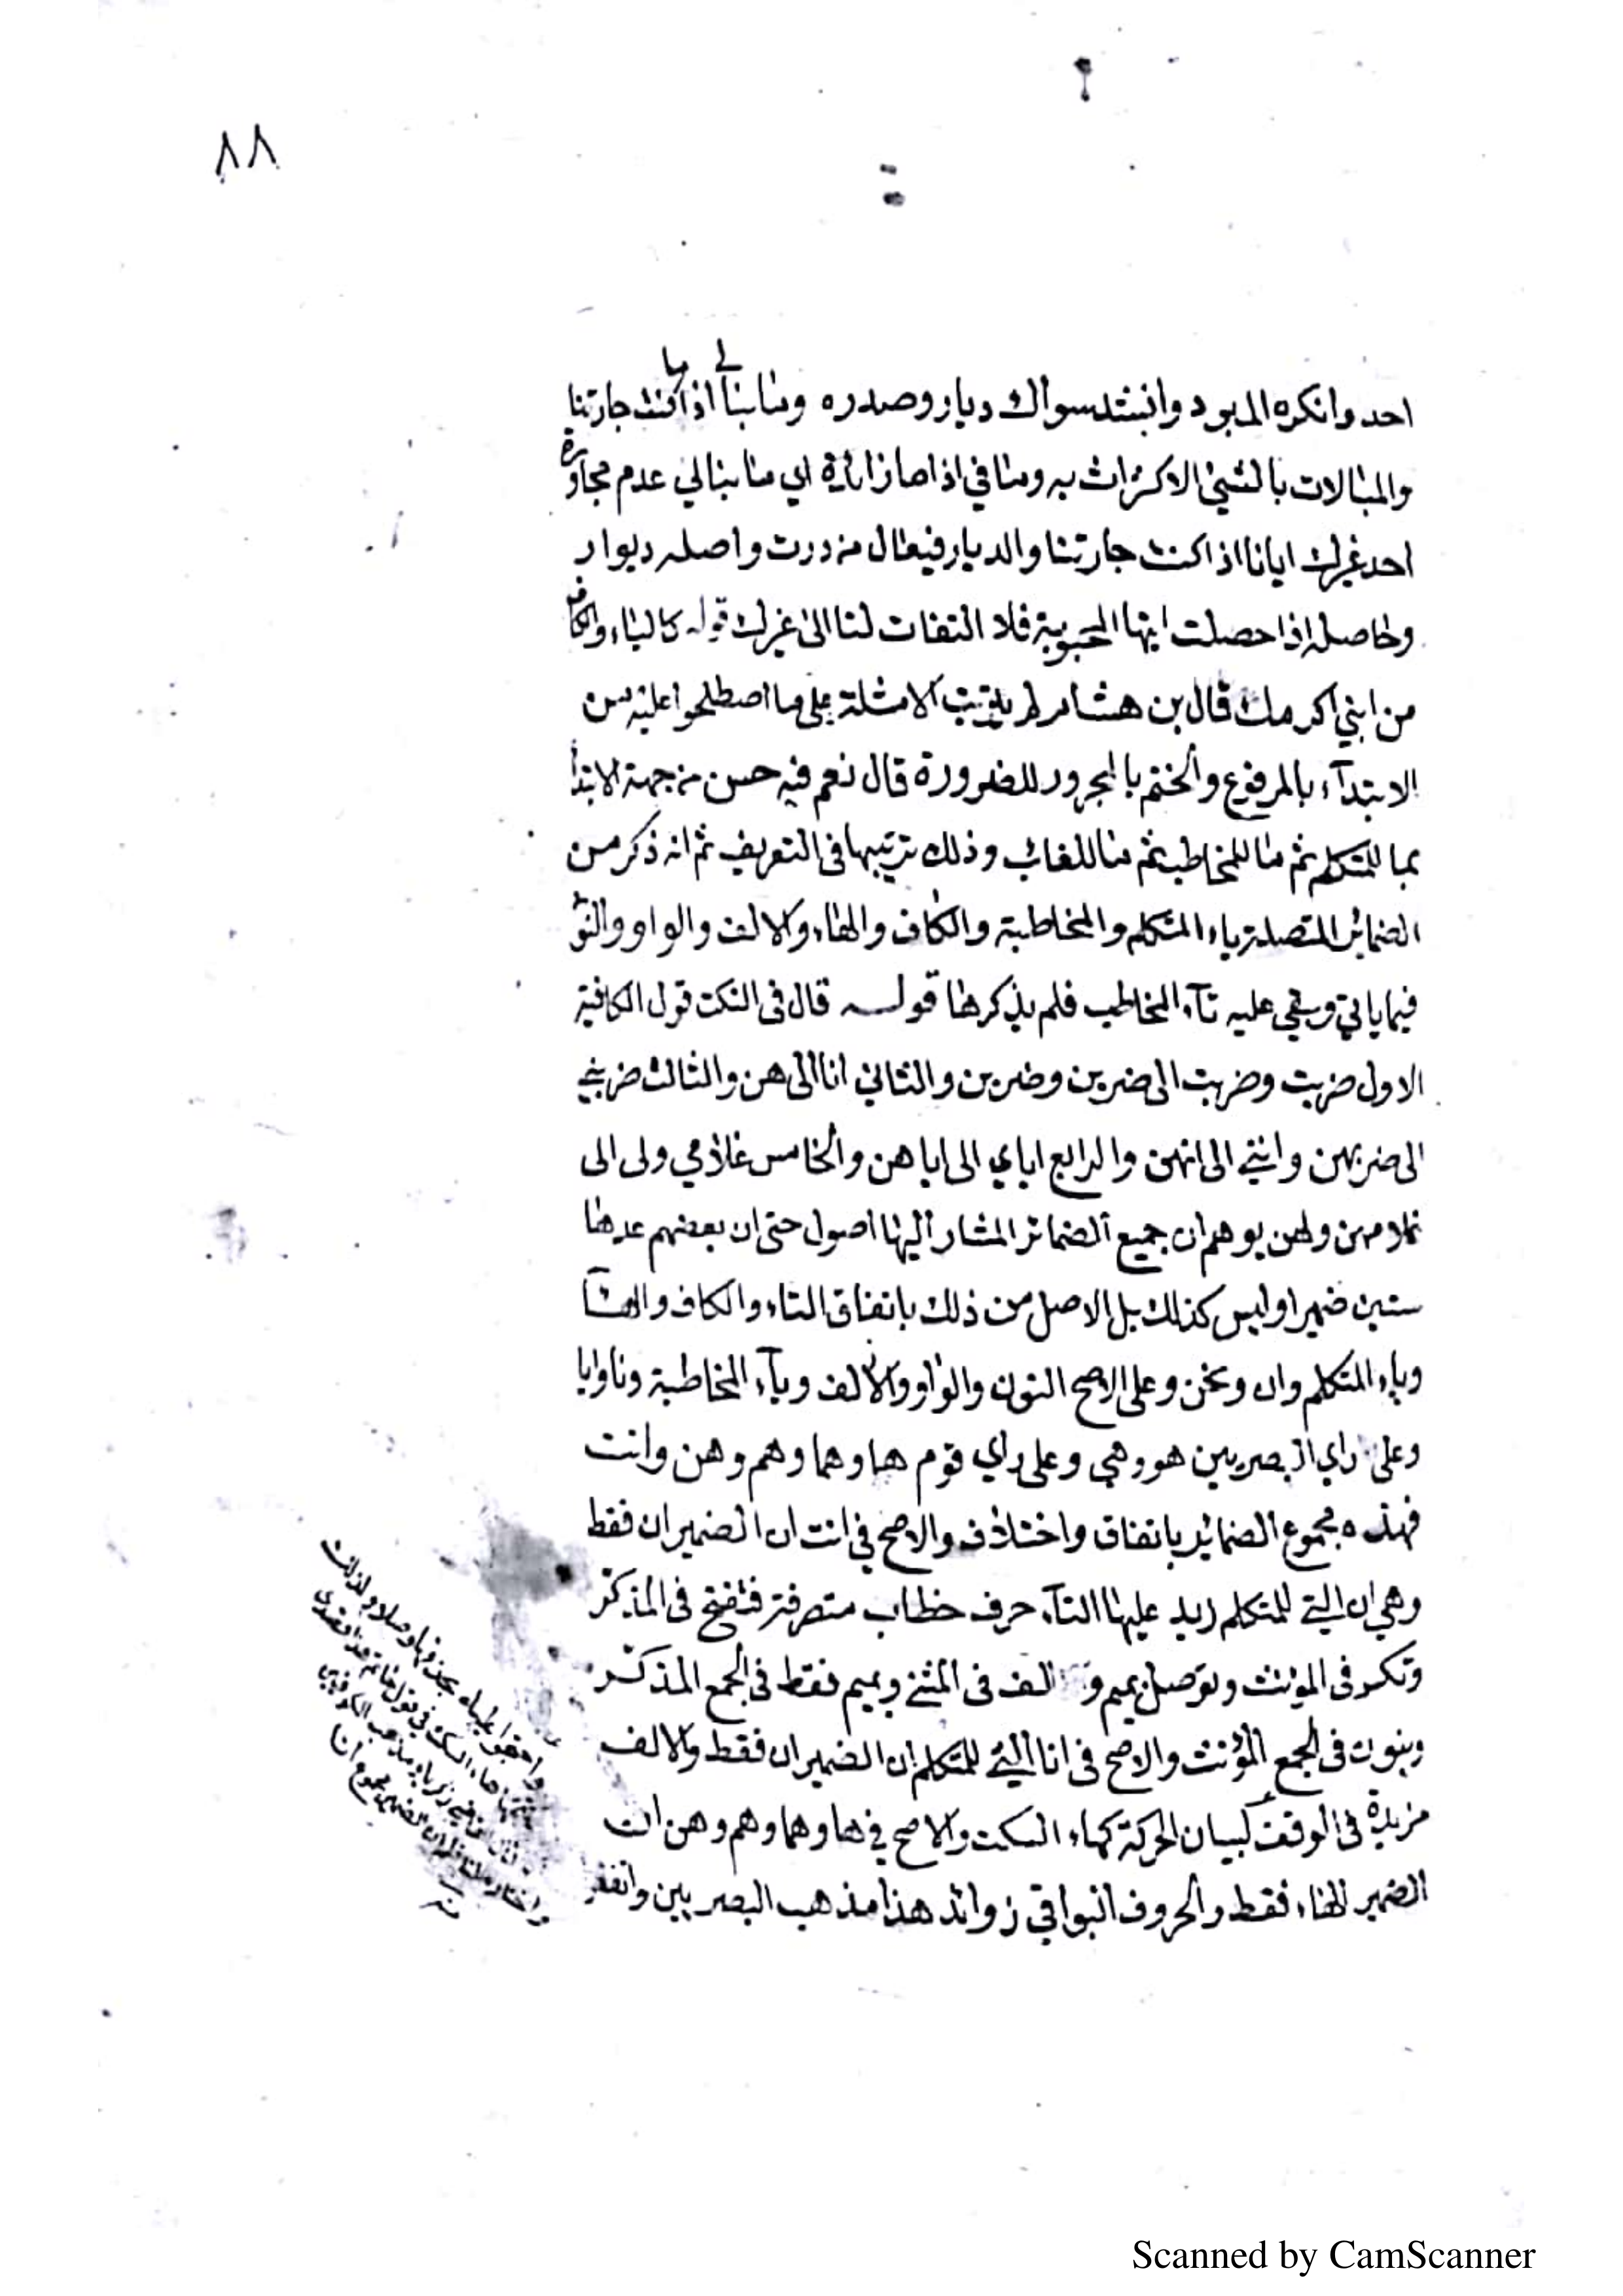 ٨٨
احد وانكره المبرد وانشد سواك ديار وصدره وما نبالي اذا ما كنت جارتنا
والمبالات بالشيئ الاكتراث به وما في اذا ما زائدة اي ما نبالي عدم مجاورة
احد غيرك ايانا اذا كنت جارتنا والديار فيعال من درت واصله ديوار
وحاصله اذا حصلت ايتها المحبوبة فلا التفات لنا الى غيرك قوله كالياء والكاف
من ابني اكرمك قال بن هشام لم يرتب الامثلة على ما اصطلحوا عليه من
الابتدآء بالمرفوع والختم بالمجرور للضرورة قال نعم فيه حسن من جهة الابتدأ
بما للمتكلم ثم ما للمخاطب ثم ما للغائب وذلك ترتيبها في التعريف ثم انه ذكر من
الضمائر المتصلة ياء المتكلم والمخاطبة والكاف والهاء والالف والواو والنو
فيما ياتي وبقي عليه تآء المخاطب فلم يذكرها قوله قال في النكت قول الكافية
الاول ضربت وضربت الى ضربن وضربن والثاني انا الى هن والثالث ضربني
الى ضربهن وانني الى انهن والرابع اياي الى اياهن والخامس غلامي ولى الى
غلامهن ولهن يوهم ان جميع الضمائر المشار اليها اصول حتى ان بعضهم عدها
ستين ضميرا وليس كذلك بل الاصل من ذلك باتفاق التاء والكاف والهآ
وياء المتكلم وان ونحن وعلى الاصح النون والواو والالف ويآء المخاطبة ونا وايا
وعلى راي البصريين هو وهي وعلى راي قوم ها وهما وهم وهن وانت
فهذه مجموع الضمائر باتفاق واختلاف والاصح في انت ان الضمير ان فقط
وهي ان التي للمتكلم زيد عليها التآء حرف خطاب متصرفة فتفتح في المذكر
وتكسر في المؤنث وتوصل بميم و الف في المثنى وبميم فقط في الجمع المذكر
وبنون في الجمع المؤنث والاصح في انا التي للمتكلم ان الضمير ان فقط والالف
مزيدة في الوقف لبيان الحركة كهاء السكت والاصح في ها وهما وهم وهن ان
الضمير الهاء فقط والحروف البواقي زوائد هذا مذهب البصريين واتفقوا